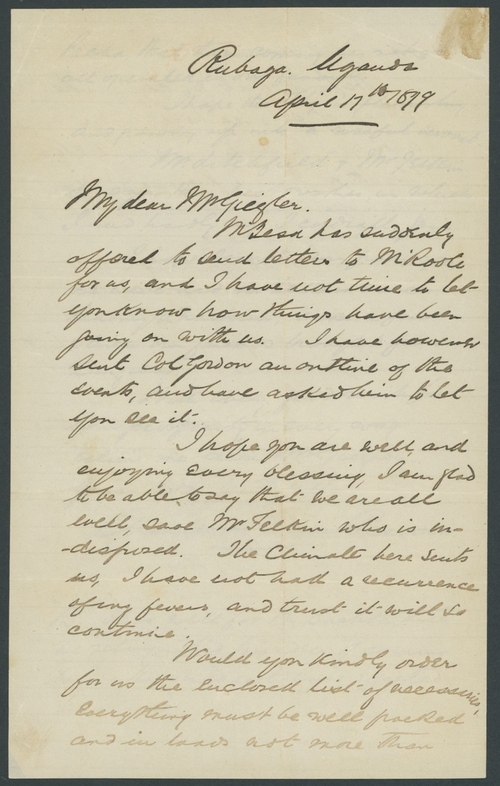 Rubaga. Uganda
April 17th 1879
My dear Mr Giegler.
Mtesa has suddenly
offered to send letters to Mrooli
for us, and I have not time to let
you know how things have been
going on with us. I have however
sent Col Gordon an outline of the
events, and have asked him to let
you see it.
I hope you are well, and
enjoying every blessing, I am glad
to be able to say that we are all
well, save Mr Felkin who is in-
-disposed. The Climate here suits
us, I have not had a recurrence
of my fever, and trust it will so
continue.
Would you kindly order
for us the enclosed list of necessaries,
everything must be well packed
and in loads not more than